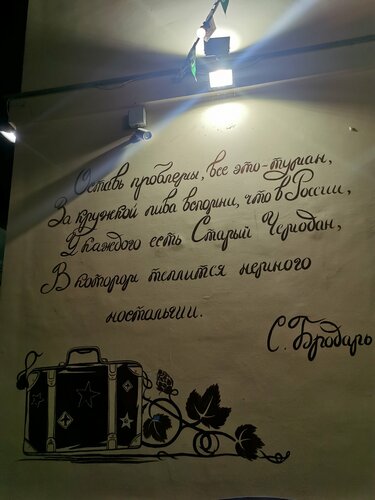 Оставь проблемы, все это-туман,
За кружкой пива вспомни, что в России,
У каждого есть Старый Чемодан,
В котором теплится немного
ностальгии.
С. Бродарь